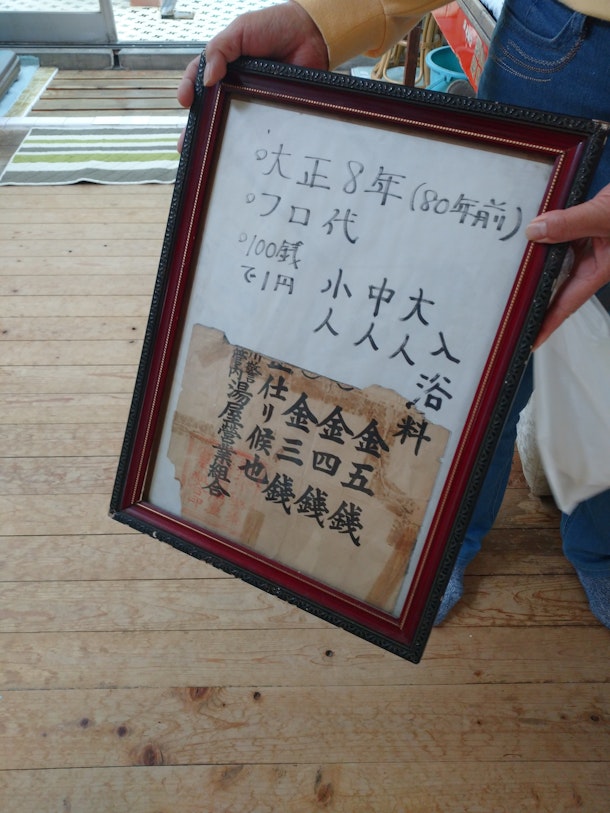 ○大正8年(80年前)
○フロ代
○100銭
で1円
入浴料
大人
中人
小人
金五銭
金四銭
金三銭
仕リ候也
管内湯屋営業組合